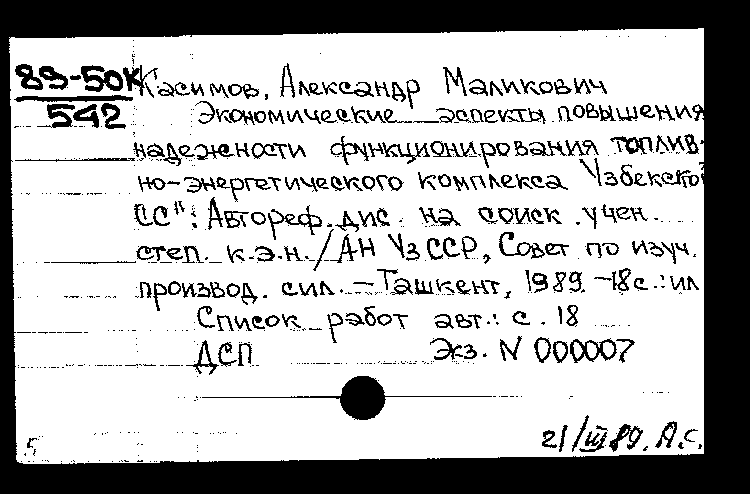 89-50К
542
Касимов, Александр Маликович
Экономические аспекты повышения
надежности функционирования топлив-
но-энергетического комплекса Узбекской
СС": Автореф. дис. на соиск. учен.
степ. к.э.н. / АН УзССР, Совет по изуч.
производ. сил. – Ташкент, 1989. – 18с.: ил
Список работ авт.: с. 18
ДСП Экз. N 000007
5
21/III 89. А.С.